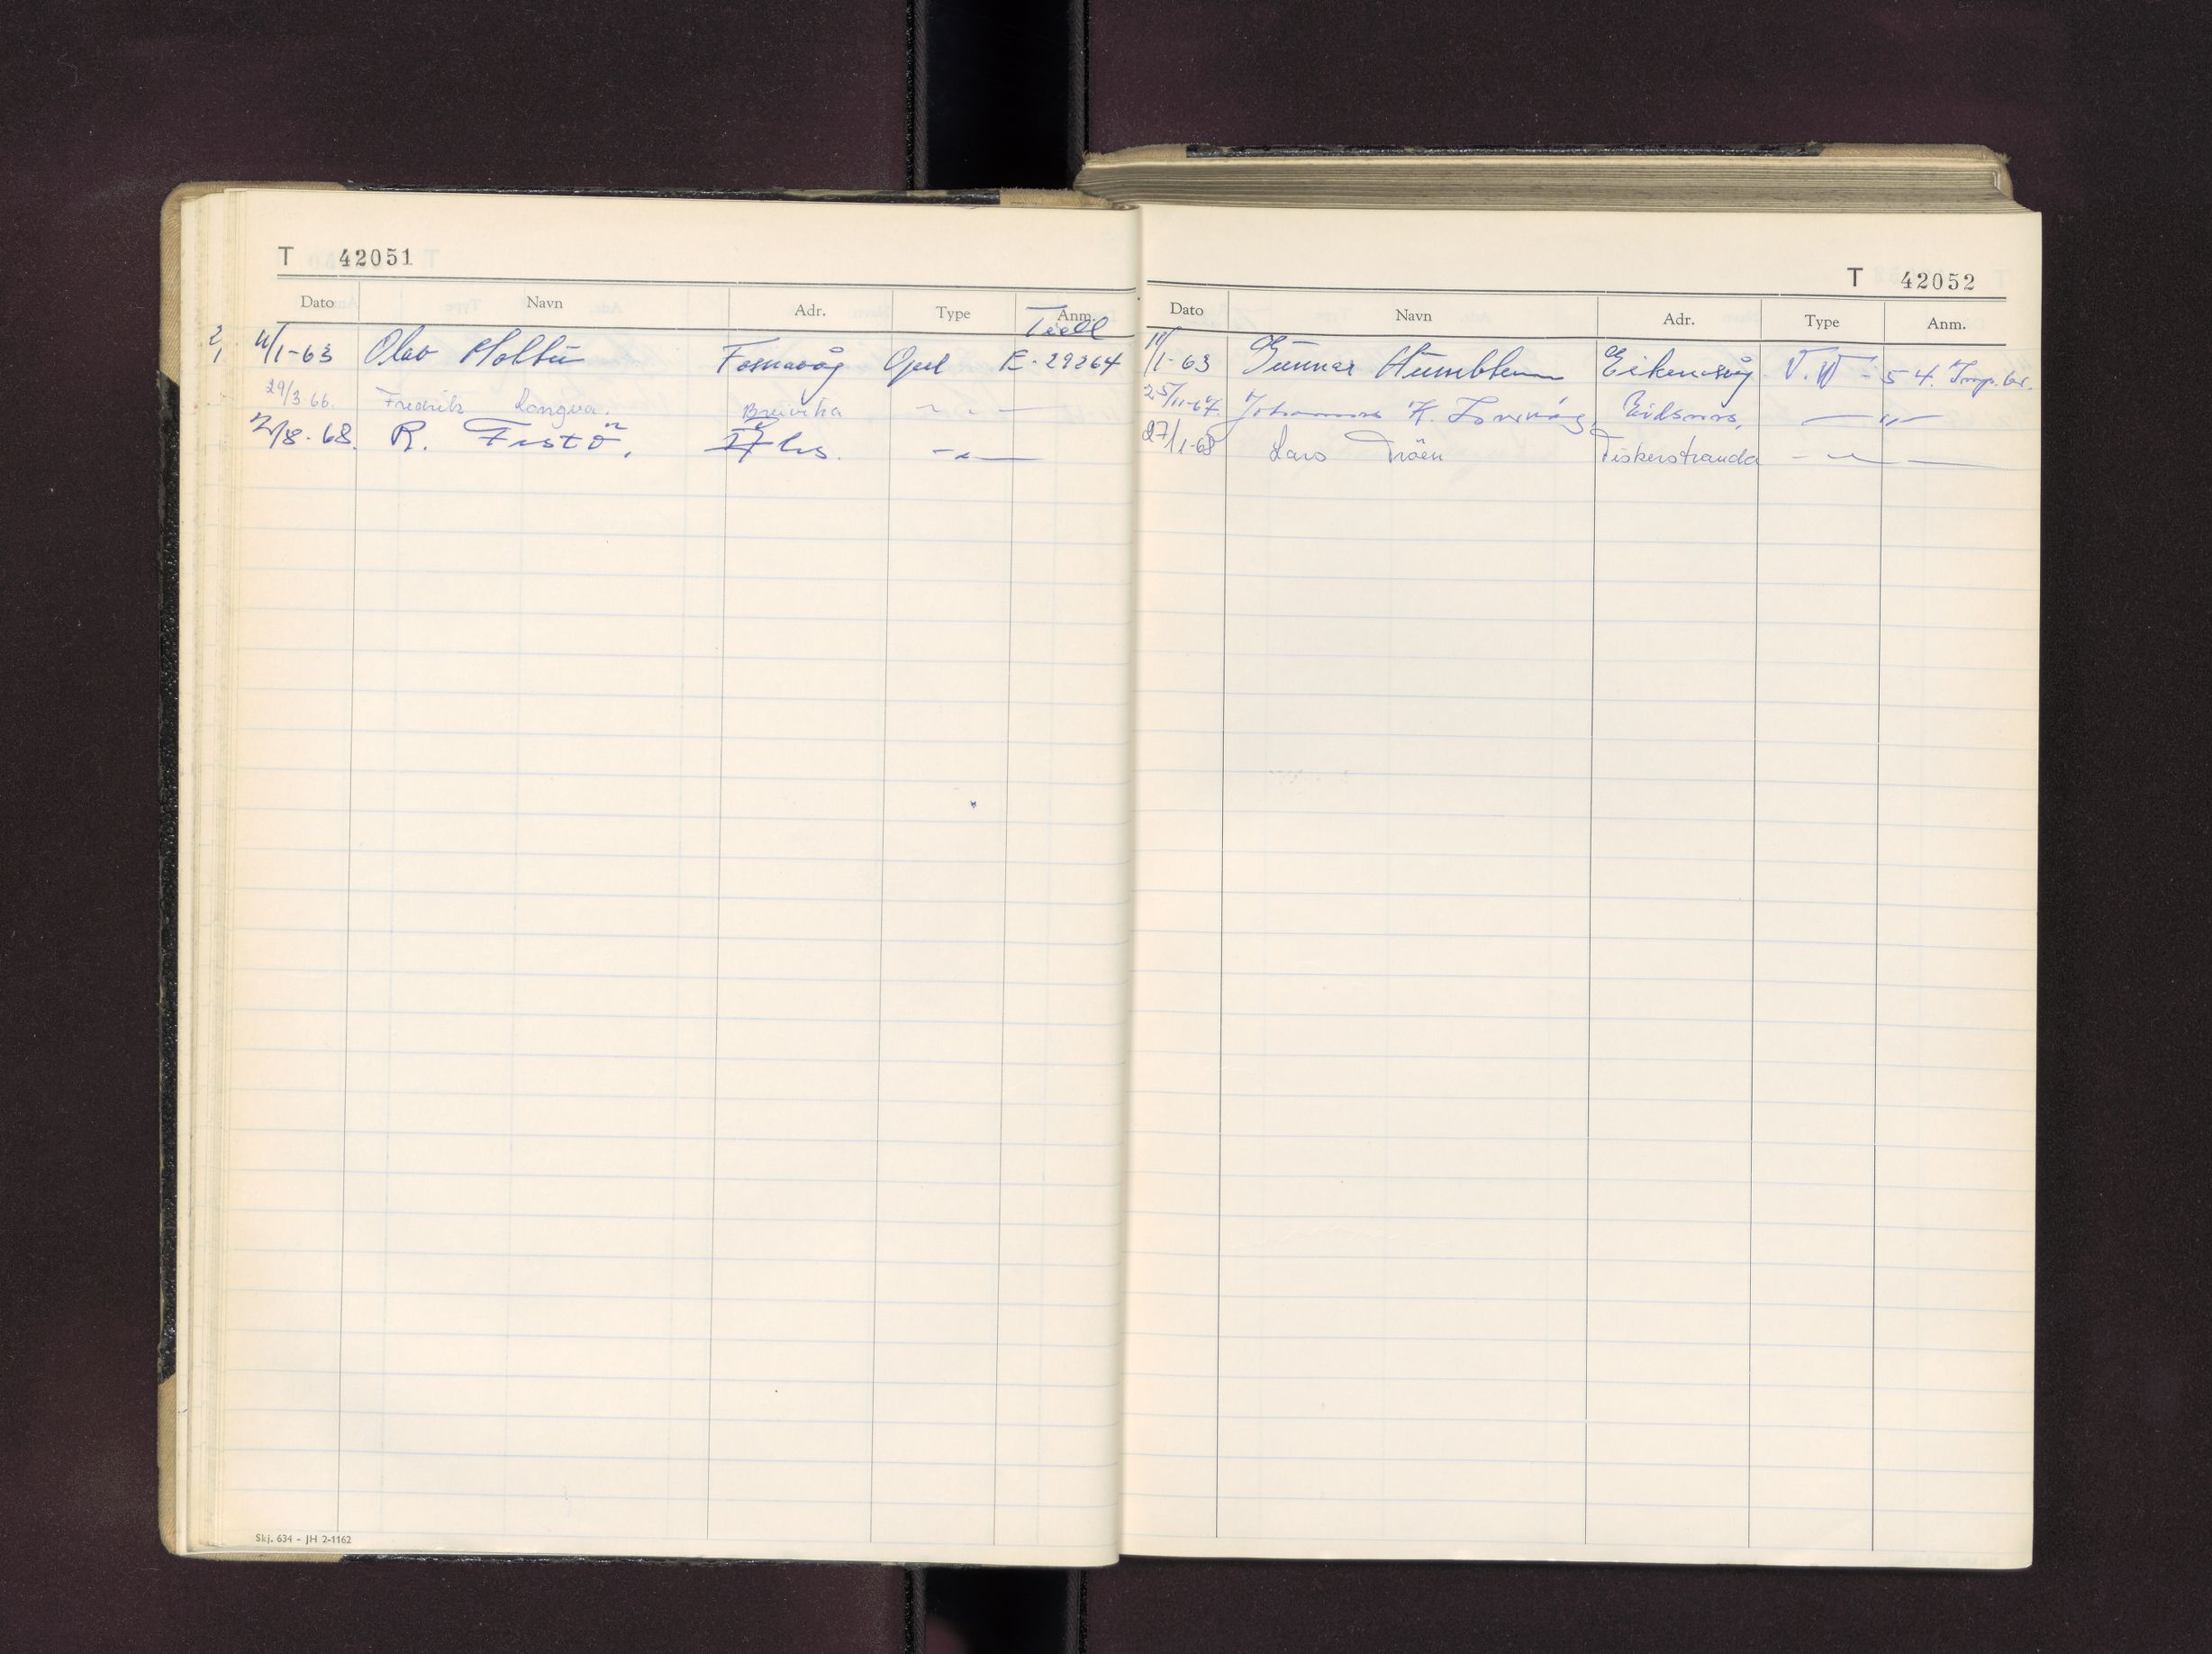 T 42051
Dato Navn Adr. Type Anm.
Tidl
4/1-63 Olav Holtu Fosnavåg Opel E-29264
29/3 66. Fredrik Longva. Breivika
2/8-68. R. Frstö, Ålss.
Skj. 634 - JH 2-1162
T 42052
Dato Navn Adr. Type Anm.
11/1-63 Gunnar Humblen Eikenosvåg V.W - 54. Imp. br.
25/11-67. Johannes K. Eidsnes, — " —
27/11-68 Lars Tröen Fiskerstranda